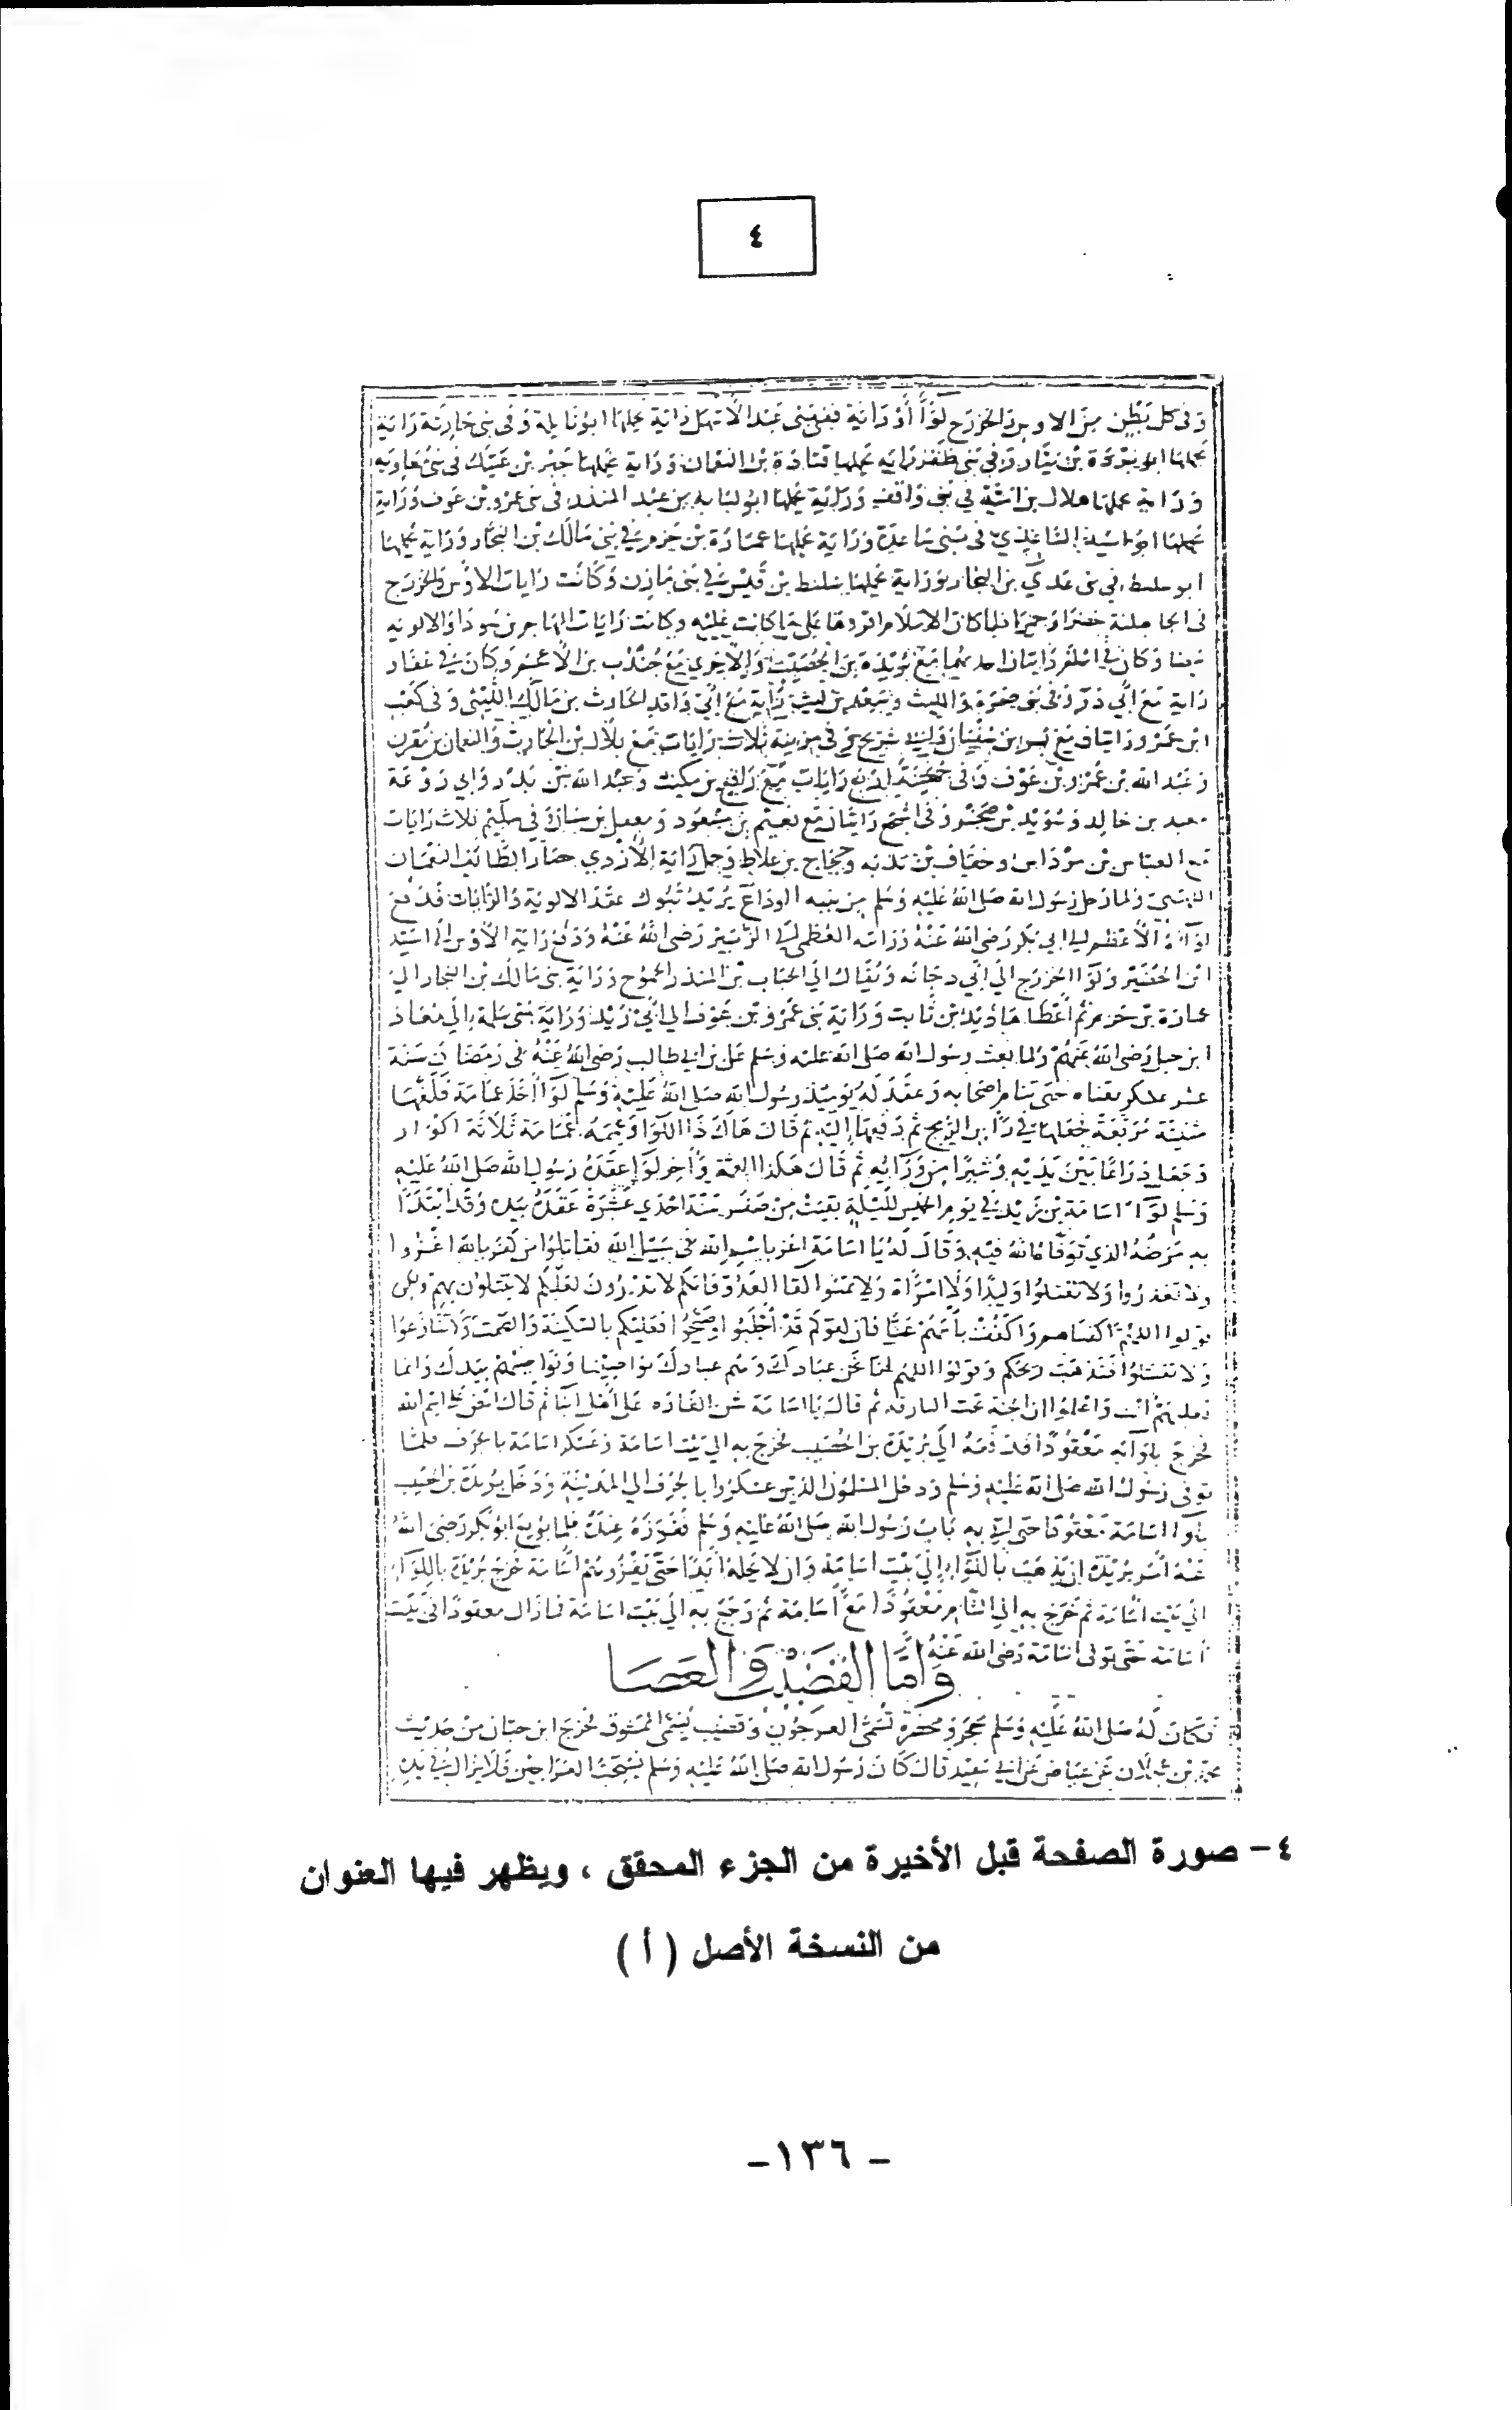 ٤
وفى كل بطن من الاوس والخزرج لوآ أو راية ففى بنى عبد الاشهل راية يحملها ابو نايلة وفى بنى حارثة راية
يحملها ابو بردة بن نيار وفى بنى ظفر راية يحملها قتادة بن النعمان وراية يحملها جبر بن عتيك فى بنى معاويه
وراية يحملها هلال بن امية في بنى واقف وراية يحملها ابو لبابة بن عبد المنذر فى بنى عمرو بن عوف وراية
يحملها ابو اسيد الساعدي فى بنى ساعدة وراية يحملها عمارة بن حزم في بنى مالك بن النجار وراية يحملها
ابو سليط في بنى عدي بن النجار وراية يحملها سليط بن قيس في بنى مازن وكانت رايات الاوس والخزرج
فى الجاهلية خضرا وحمرا فلما كان الاسلام اقروها على ما كانت عليه وكانت رايات المهاجرين سودا والالويه
بيضا وكان في اسلم رايتان احديهما مع بريدة بن الحصيب والاخري مع جندب بن الاعجم وكان في غفار
راية مع ابي ذر وفى بنى ضمرة والليث وسعد بن ليث راية مع ابي واقد الحارث بن مالك الليثى وفى كعب
ابن عمرو رايتان مع بسر بن سفيان وابي شريح وفى مزينة ثلاث رايات مع بلال بن الحارث والنعمان بن مقرن
وعبد الله بن عمرو بن عوف وفى جهينة اربع رايات مع رافع بن مكيث وعبد الله بن بدر وابي روعة
معبد بن خالد وسويد بن صخر وفى اشجع رايتان مع نعيم بن مسعود ومعقل بن سنان وفي سليم ثلاث رايات
مع العباس بن مرداس وخفاف بن ندبه وحجاج بن علاط وحمل راية الازدي حصار الطائف النعمان
ولما رحل رسول الله صلى الله عليه وسلم من ثنيه الوداع يريد تبوك عقد الالوية والرايات فدفع
لوآءه الاعظم الي ابي بكر رضى الله عنه ورايته العظمى الي الزبير رضى الله عنه ودفع راية الاوس الى اسيد
ابن الحضير ولوآ الخزرج الي ابي دجانه ويقال الى الحباب بن المنذر الجموح وراية بنى مالك بن النجار الي
عمارة بن حزم ثم اعطاها زيد بن ثابت وراية بنى عمرو بن عوف الي ابي زيد وراية بنى سلمة الي معاذ
ابن جبل رضى الله عنهم ولما بعث رسول الله صلى الله عليه وسلم على بن ابي طالب رضى الله عنه فى رمضان سنة
عشر عسكر بقناه حتى تتام اصحابه وعقد له يوميذ رسول الله صلى الله عليه وسلم لوآ اخذ عمامة فلفها
مثنية مربعة فجعلها في راس الرمح ثم دفعها اليه ثم قال هاك ذا اللوا وعممه عمامة ثلاثة اكوار
وجعل ذراعا بين يديه وشبرا من ورآيه ثم قال هكذا العمة وآخر لوآ عقده رسول الله صلى الله عليه
وسلم لوآ اسامة بن زيد في يوم الخميس لليلة بقيت من صفر سنة احدي عشرة عقده بيده وقد ابتدا
به مرضه الذي توفاه الله فيه وقال له يا اسامة اغز باسم الله فى سبيل الله فقاتلوا من كفر بالله اغزوا
ولا تغدروا ولا تقتلوا وليدا ولا امرآة ولا تمنوا لقا العدو فانكم لا تدرون لعلكم لا تبتلون بهم ولكن
قولوا اللهم اكفناهم واكفف باسهم عنا فان لقوكم قد اجلبوا وصيحوا فعليكم بالسكينة والصمت ولا تنازعوا
ولا تفشلوا فتذهب ريحكم وقولوا اللهم انا نحن عبادك وهم عبادك نواصينا ونواصيهم بيدك وانما
تغلبهم انت واعلموا ان الجنة تحت البارقه ثم قال يا اسامة شن الغاره على اهل ابنا ثم قال امض على اسم الله
فخرج بلوآئه معقودا فدفعه الي بريدة بن الحصيب فخرج به الي بيت اسامة وعسكر اسامة بالجرف فلما
توفى رسول الله صلى الله عليه وسلم ودخل المسلمون الذين عسكروا بالجرف الي المدينة ودخل بريدة بن الحصيب
بلوآ اسامة معقودا حتى اتي به باب رسول الله صلى الله عليه وسلم فغرزه عنده فلما بويع ابو بكر رضى الله
عنه امر بريدة ان يذهب باللوآ الي بيت اسامة وان لا يحله ابدا حتى يغزوهم اسامة فخرج بريدة باللوآ
الي بيت اسامة ثم خرج به الي الشام معقودا مع اسامة ثم رجع به الي بيت اسامة فما زال معقودا فى بيت
اسامة حتى توفى اسامة رضى الله عنه
وَامَّا القضيب والعصا
فكان له صلى الله عليه وسلم محجن ومخصرة تسمى العرجون وقضيب يسمى الممشوق فخرج ابن حبان من حديث
محمد بن عجلان عن عياض عن ابي سعيد قال كان رسول الله صلى الله عليه وسلم تعجبه العراجين فلا يزال في يده
٤- صورة الصفحة قبل الأخيرة من الجزء المحقق ، ويظهر فيها العنوان
من النسخة الأصل ( أ )
- ١٣٦ -